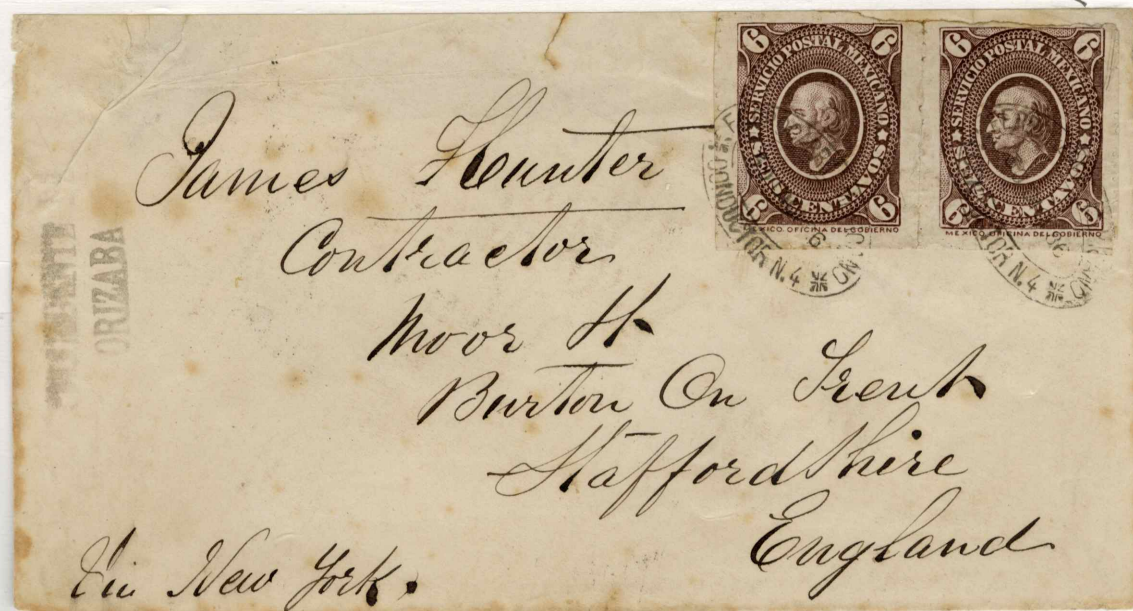 6 SERVICIO POSTAL MEXICANO 6
6 SEIS CENTAVOS 6
MEXICO. OFICINA DEL GOBIERNO
6 SERVICIO POSTAL MEXICANO 6
6 SEIS CENTAVOS 6
MEXICO. OFICINA DEL GOBIERNO
CONDUCTOR N.4
N.4
ORIZABA
James Hunter
Contractor
Moor St
Burton On Trent
Staffordshire
England
Via New York.